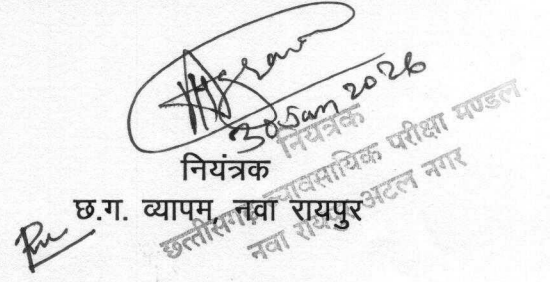 30 Jan 2026
नियंत्रक
छ.ग. व्यापम, नवा रायपुर
नियंत्रक
छत्तीसगढ़ व्यावसायिक परीक्षा मण्डल
नवा रायपुर अटल नगर